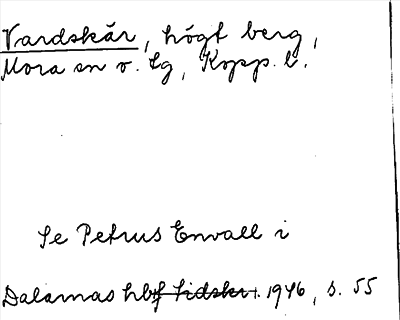 Vardskär, högt berg,
Mora sn o. lg, Kopp. l.
Se Petrus Envall i
Dalarnas hbf tidskr. 1946, s. 55